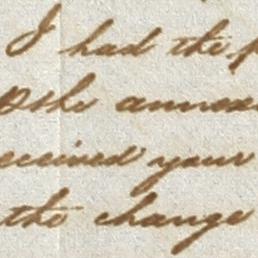 I had the p
the annex
eceived your
the change